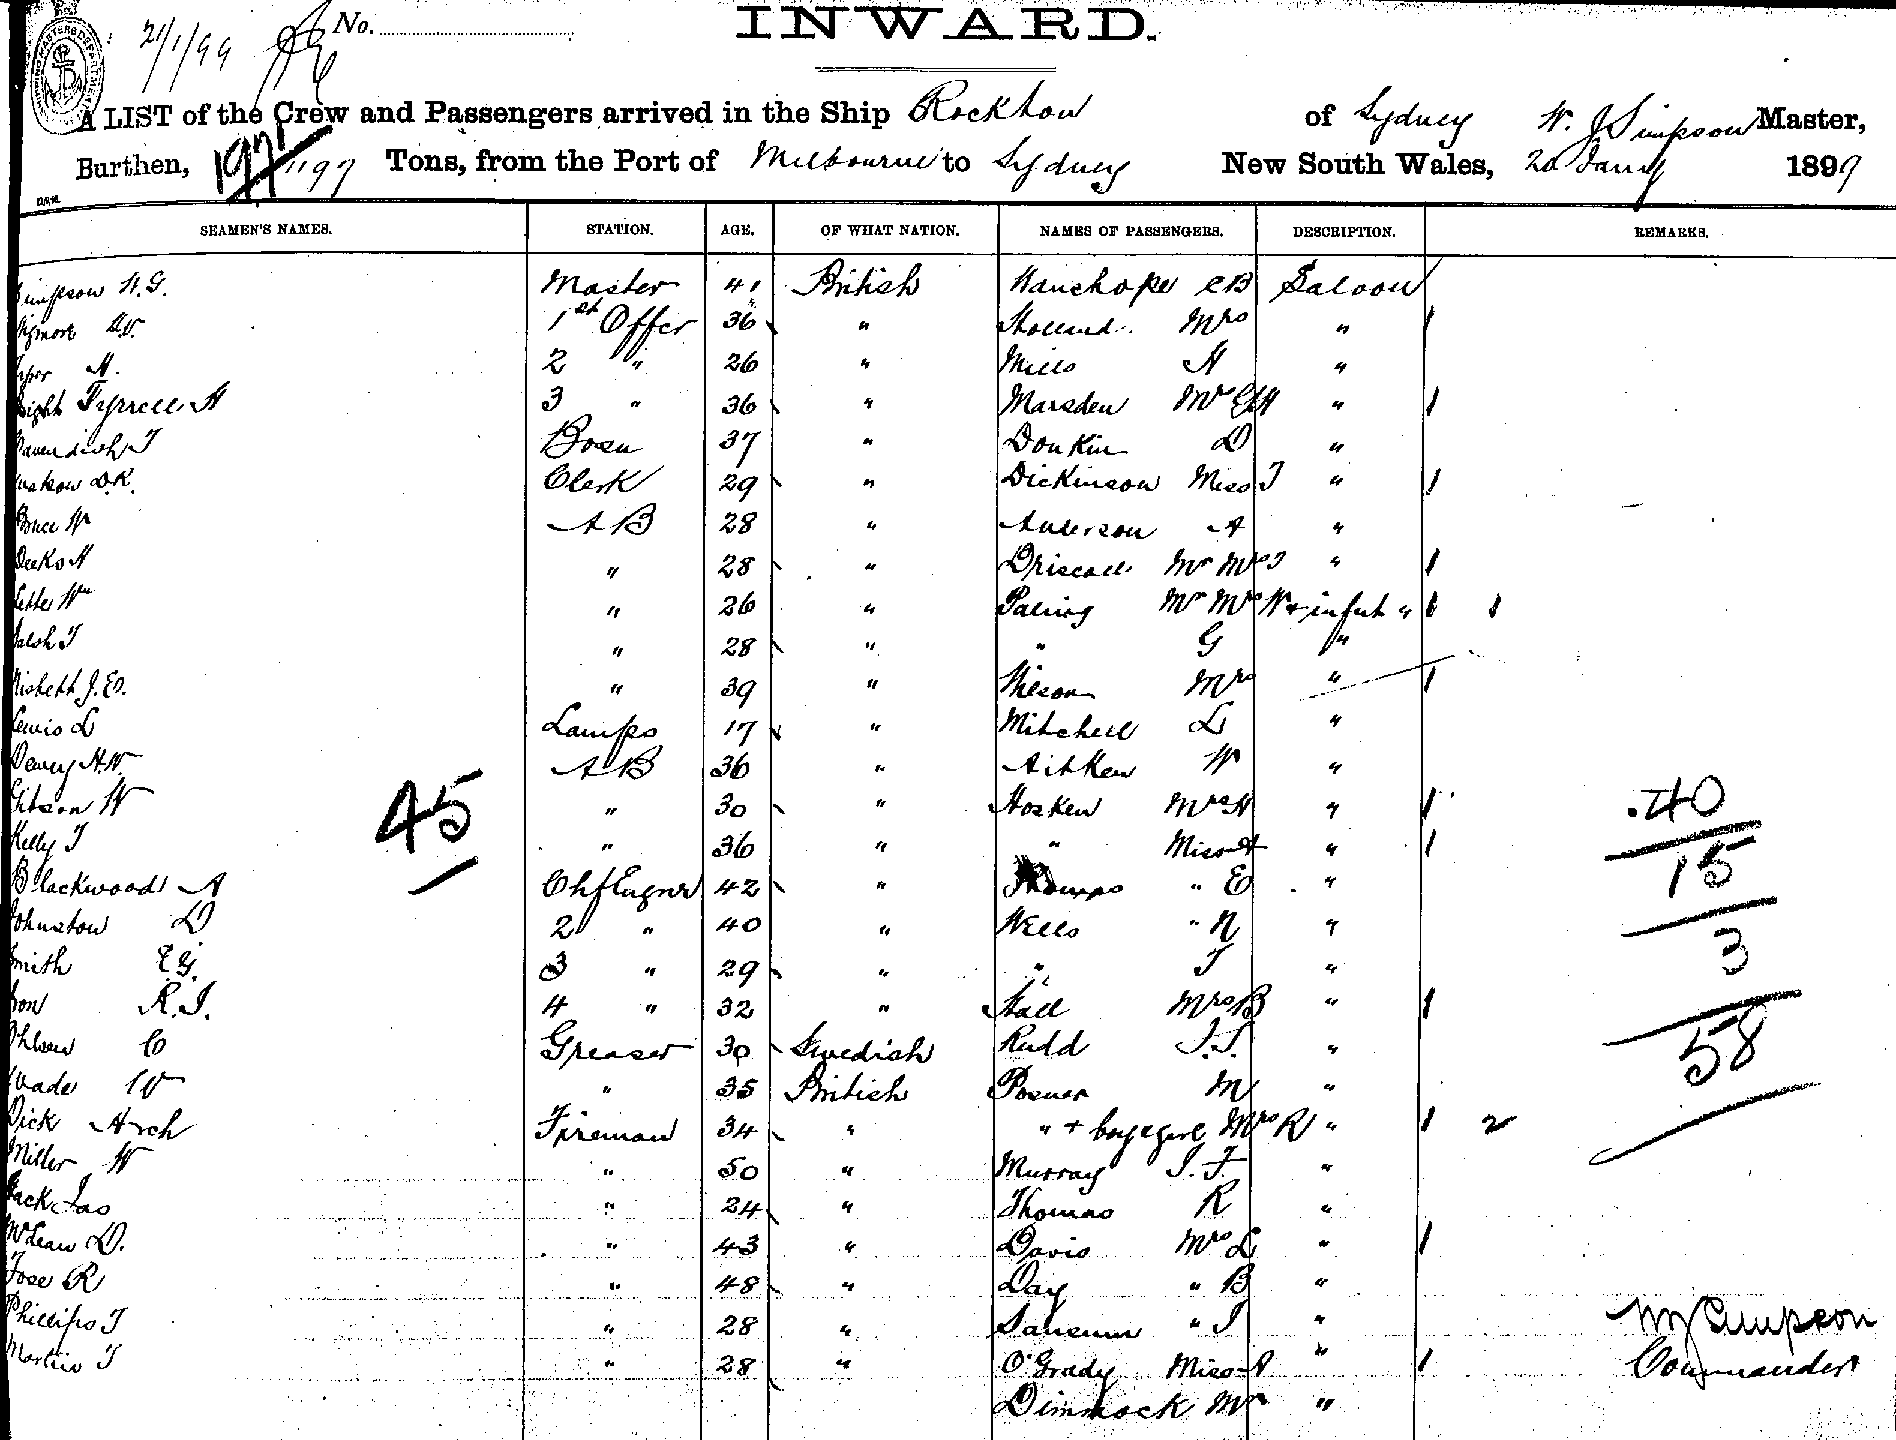 21/1/99
No.
INWARD.
A LIST of the Crew and Passengers arrived in the Ship Rockton of Sydney W. J Simpson Master,
Burthen, 1971/1197 Tons, from the Port of Melbourne to Sydney New South Wales, 20 Jany 1899
SEAMEN'S NAMES. STATION. AGE. OF WHAT NATION. NAMES OF PASSENGERS. DESCRIPTION. REMARKS.
Simpson W.G. Master 41 British Wanchope CB Saloon
1st Offer 36 " Holland Mrs " 1
H. 2 " 26 " Mills H "
Tyrrell H 3 " 36 " Marsden Mr " 1
Cavendish T Bosn 37 " Donkin D "
D.R. Clerk 29 " Dickinson Miss T " 1
Bruce W A B 28 " Anderson A "
Deeks H " 28 " Driscoll Mr Mrs T " 1
Wm " 26 " Paling Mr Mrs W + infnt " 1 1
Walsh T " 28 " " G "
Nisbett J.Ed. " 39 " Wilson Mrs " 1
Lewis L Lamps 17 " Mitchell L "
Dewey H.W. A B 36 " Aitken W "
Gibson W " 30 " Hosken Mrs H " 1
Kelly T " 36 " " Miss A " 1
45
.40
15
3
58
Blackwood A Chf Engner 42 " Thomps " E "
Johnston D 2 " 40 " Wells " N "
Smith E.G. 3 " 29 " " T "
R.J. 4 " 32 " Hall Mrs B " 1
C Greaser 30 Swedish Rudd J.J. "
Wade W " 35 British Posner M "
Dick Arch Fireman 34 " " + boy & girl Mrs R " 1 2
Miller W " 50 " Murray J.F. "
Jack Jas " 24 " Thomas R "
McLean D. " 43 " Davis Mrs L " 1
Tose R " 48 " Day " B "
Phillips T " 28 " Sansum " J "
Martin T " 28 " O'Grady Miss A " 1
Dimmock Mr "
W J Simpson
Commander